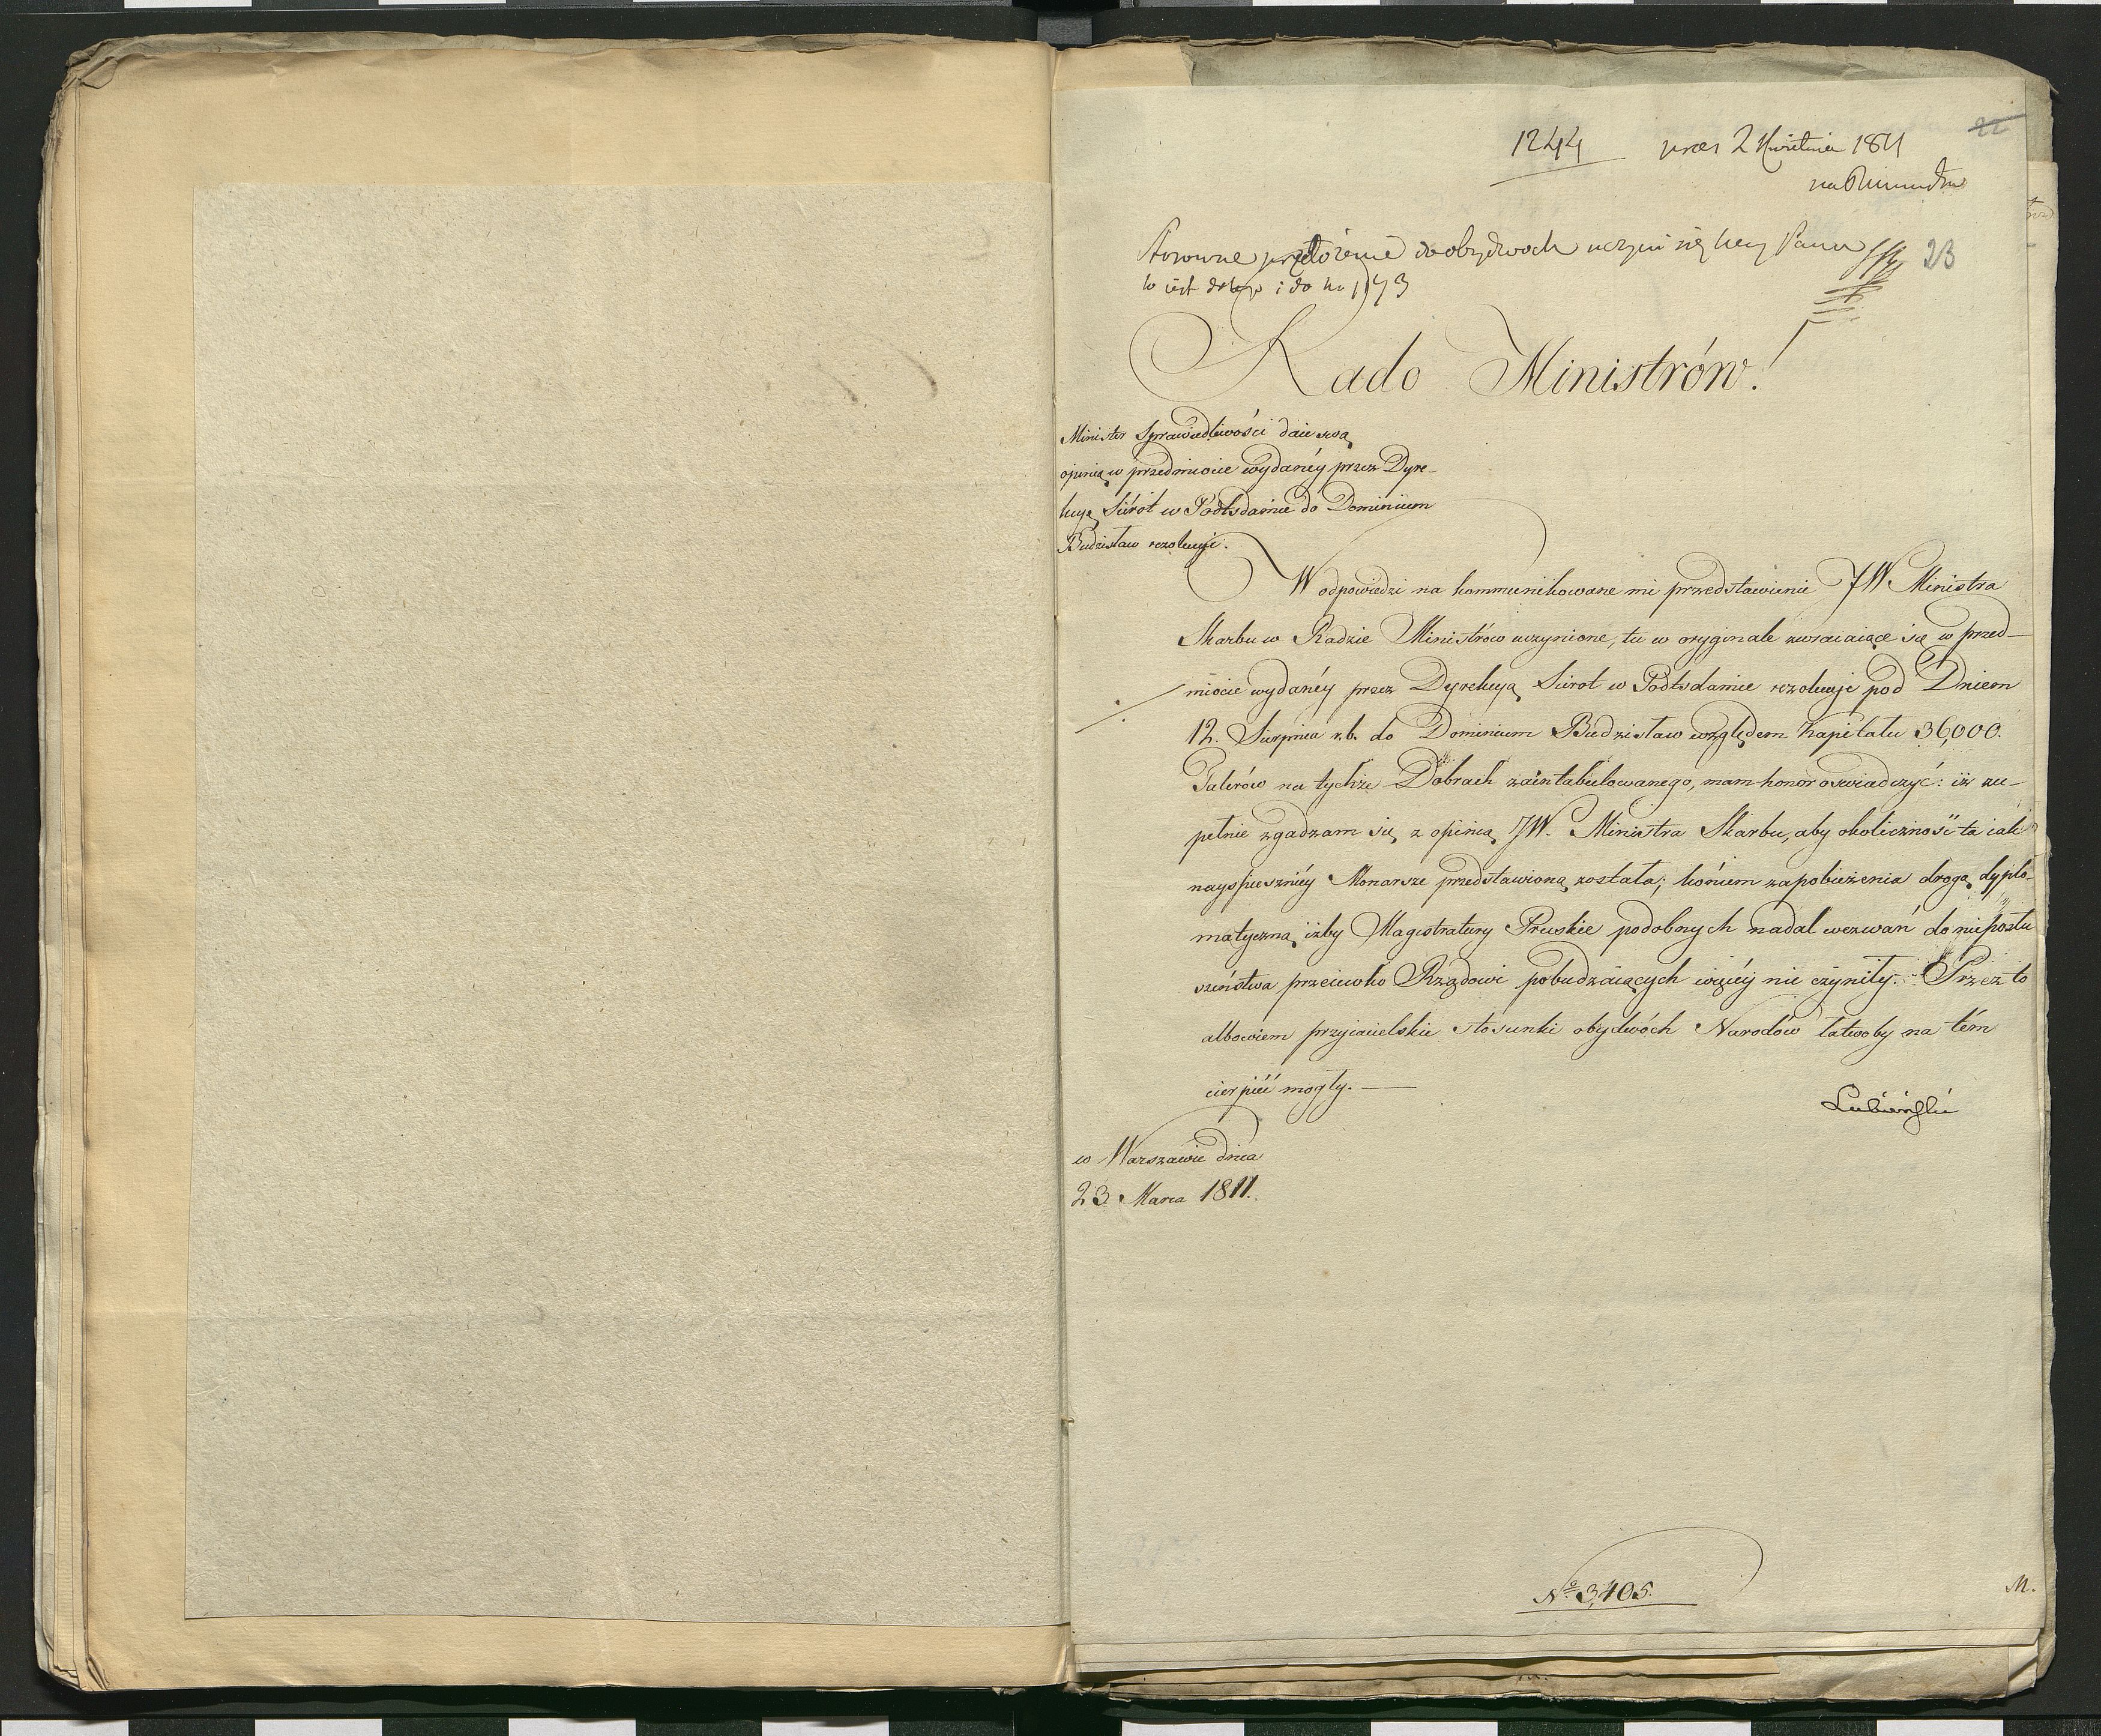 1244 pres 2 Kwietnia 1811
22
23
Stosowne przełożenie do obydwóch uczyni się Panu
to iest do tego i do No 1173
Rado Ministrów!
Minister Sprawiedliwości daie swą
opinią w przedmiocie wydanéy przez Dyre-
kcyą Sierot w Podtsdamie do Dominium
Budzisław rezolucyi.
W odpowiedzi na kommunikowane mi przedstawienie JW Ministra
Skarbu w Radzie Ministrów uczynione, tu w oryginale zwracaiące się w przed-
miocie wydanéy przez Dyrekcyą Sierot w Podtsdamie rezolucyi pod Dniem
12. Sierpnia r.b. do Dominium Budzisław względem Kapitału 36,000.
Talerów na tychże Dobrach zaintabulowanego, mam honor oświadczyć: iż zu-
pełnie zgadzam się z opinią JW. Ministra Skarbu, aby okoliczność ta iak
nayspieszniéy Monarsze przedstawioną została; końcem zapobieżenia drogą dyplo-
matyczną, iżby Magistratury Pruskie podobnych nadal wezwań do niepostu
szeństwa przeciwko Rządowi pobudzaiących więcéy nie czyniły. Przez to
albowiem przyiacielskie stosunki obydwóch Narodów łatwoby na tém
cierpieć mogły. —
Lubieński
w Warszawie dnia
23 Marca 1811.
No 3,405.
M.